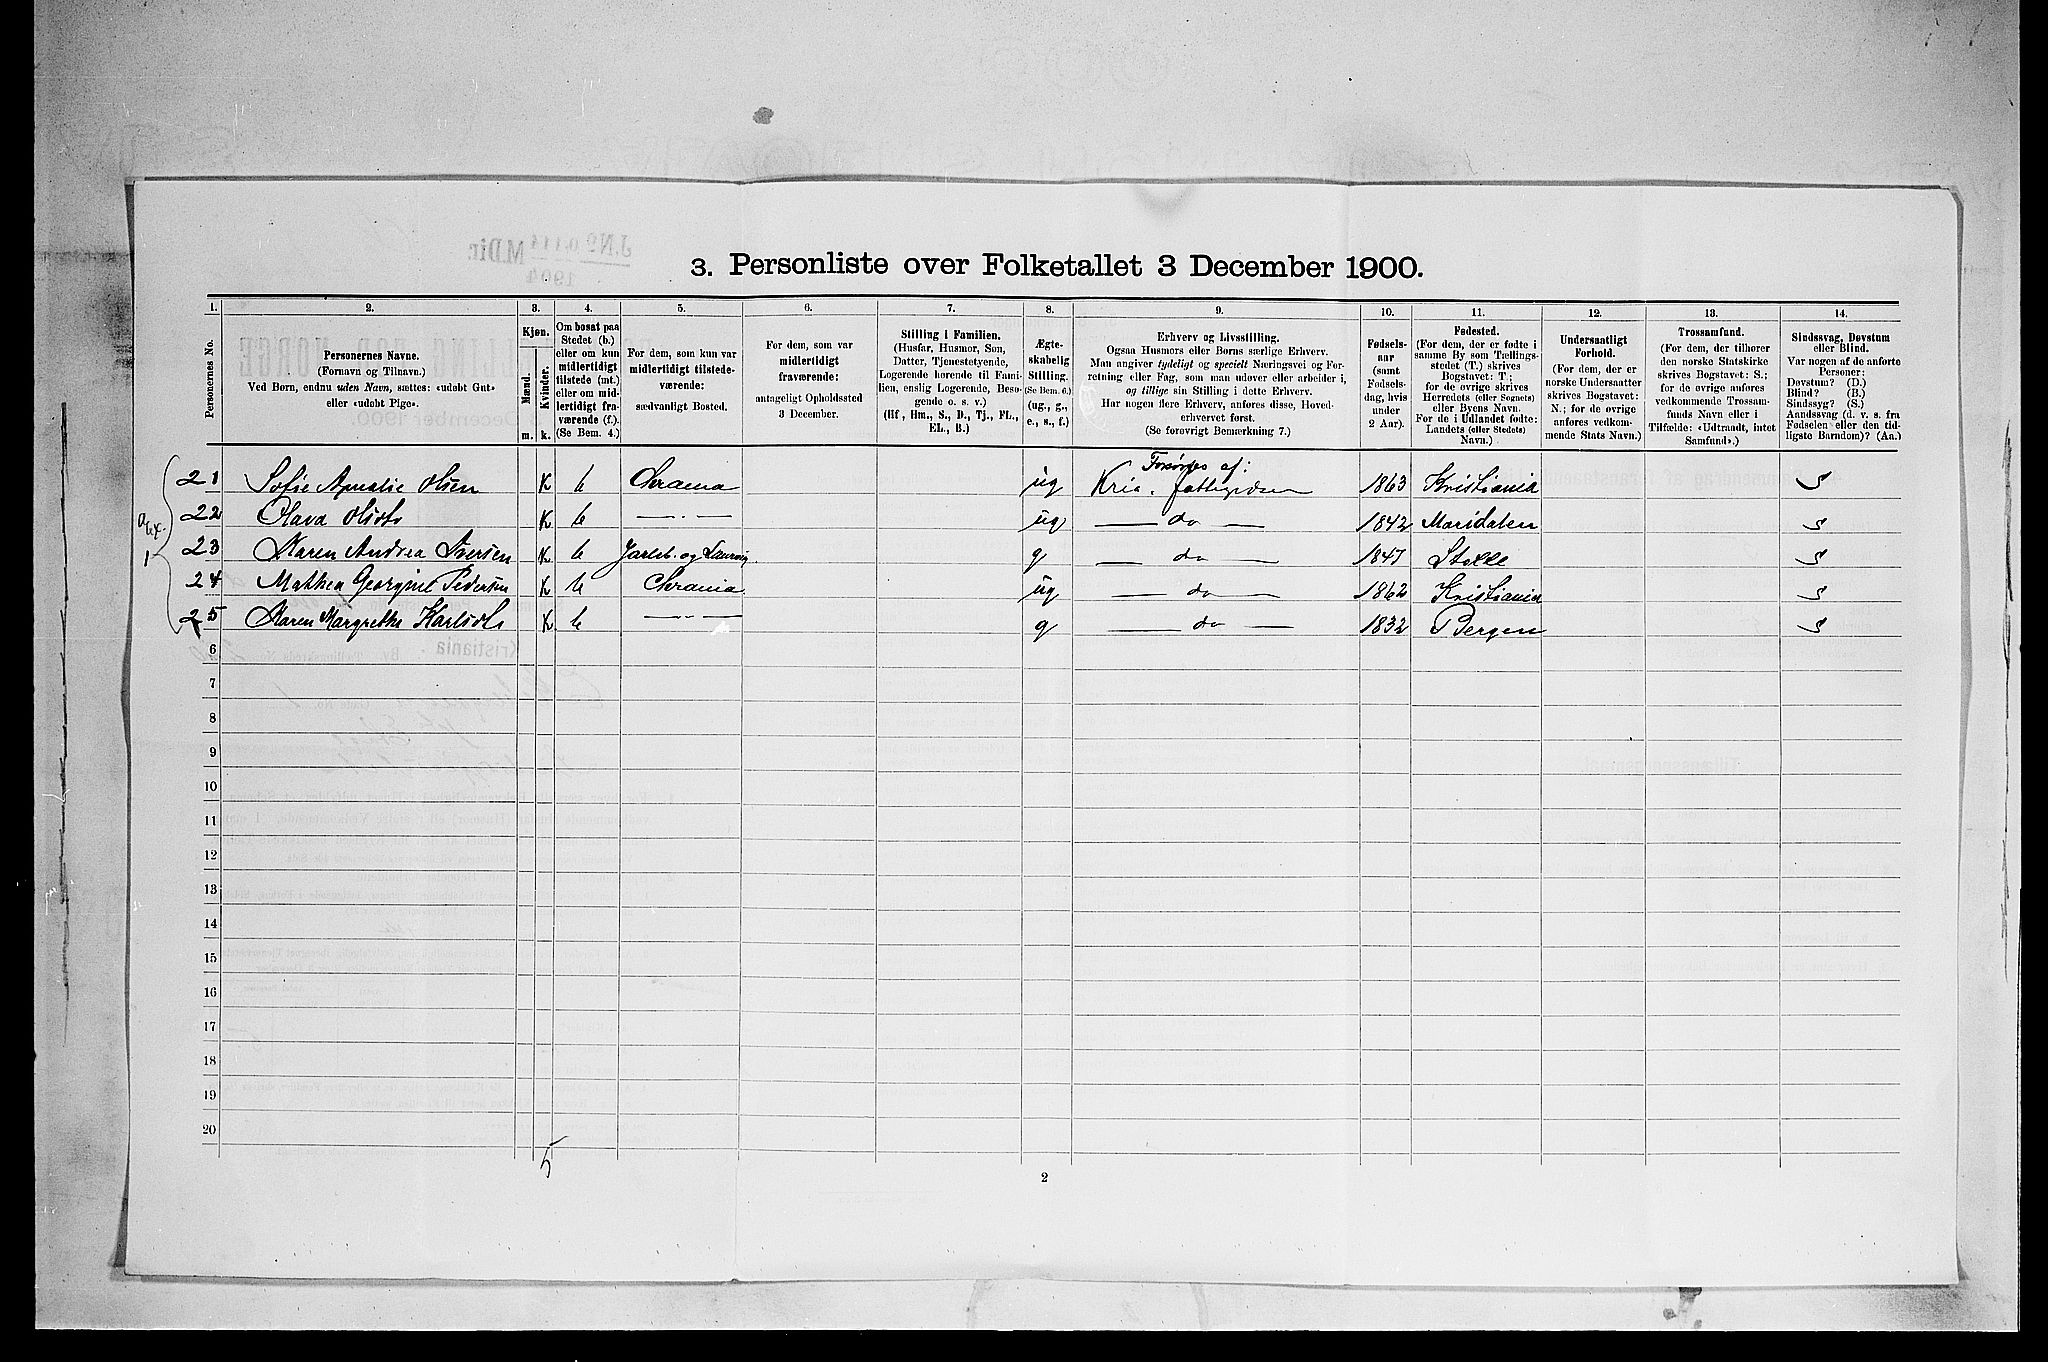 3. Personliste over Folketallet 3 December 1900.
1. 2. 3. 4. 5. 6. 7. 8. 9. 10. 11. 12. 13. 14.
Personernes No.
Personernes Navne.
(Fornavn og Tilnavn.)
Ved Børn, endnu uden Navn, sættes: «udøbt Gut»
eller «udøbt Pige».
Kjøn.
Mænd.
Kvinder.
m. k.
Om bosat paa
Stedet (b.)
eller om kun
midlertidigt
tilstede (mt.)
eller om mid-
lertidigt fra-
værende (f.).
(Se Bem. 4.)
For dem, som kun var
midlertidigt tilstede-
værende:
sædvanligt Bosted.
For dem, som var
midlertidigt
fraværende:
antageligt Opholdssted
3 December.
Stilling i Familien.
(Husfar, Husmor, Søn,
Datter, Tjenestetyende,
Logerende hørende til Fami-
lien, enslig Logerende, Besø-
gende o. s. v.)
(Hf., Hm., S., D., Tj., FL.,
EL., B.)
Ægte-
skabelig
Stilling.
(Se Bem. 6.)
(ug., g.,
e., s., f.)
Erhverv og Livsstilling.
Ogsaa Husmors eller Børns særlige Erhverv.
Man angiver tydeligt og specielt Næringsvei og For-
retning eller Fag, som man udøver eller arbeider i,
og tillige sin Stilling i dette Erhverv.
Har nogen flere Erhverv, anføres disse, Hoved-
erhvervet først.
(Se forøvrigt Bemærkning 7.)
Fødsels-
aar
(samt
Fødsels-
dag, hvis
under
2 Aar).
Fødested.
(For dem, der er fødte i
samme By som Tællings-
stedet (T.) skrives
Bogstavet: T;
for de øvrige skrives
Herredets (eller Sognets)
eller Byens Navn.
For de i Udlandet fødte:
Landets (eller Stedets)
Navn.)
Undersaatligt
Forhold.
(For dem, der er
norske Undersaatter
skrives Bogstavet:
N.; for de øvrige
anføres vedkom-
mende Stats Navn.)
Trossamfund.
(For dem, der tilhører
den norske Statskirke
skrives Bogstavet: S.;
for de øvrige anføres
vedkommende Trossam-
funds Navn eller i
Tilfælde: «Udtraadt, intet
Samfund».)
Sindssvag, Døvstum
eller Blind.
Var nogen af de anførte
Personer:
Døvstum? (D.)
Blind? (B.)
Sindssyg? (S.)
Aandssvag (d. v. s. fra
Fødselen eller den tid-
ligste Barndom)? (Aa.)
21 Sofie Amalie Olsen K b Chrania ug Forsørges af: Kria. fattigvæsen 1863 Kristiania S
22 Olava Olsdt. K b —"— ug — do — 1842 Maridalen S
23 Karen Andrea Iversen K b Jarlsb. og Laurvig g — do — 1847 Stokke S
24 Mathea Georgine Pedersen K b Chrania ug — do — 1862 Kristiania S
25 Karen Margrethe Karlsdt. K b —"— g — do — 1832 Bergen S
6
7
8
9
10
11
12
13
14
15
16
17
18
19
20
5
2